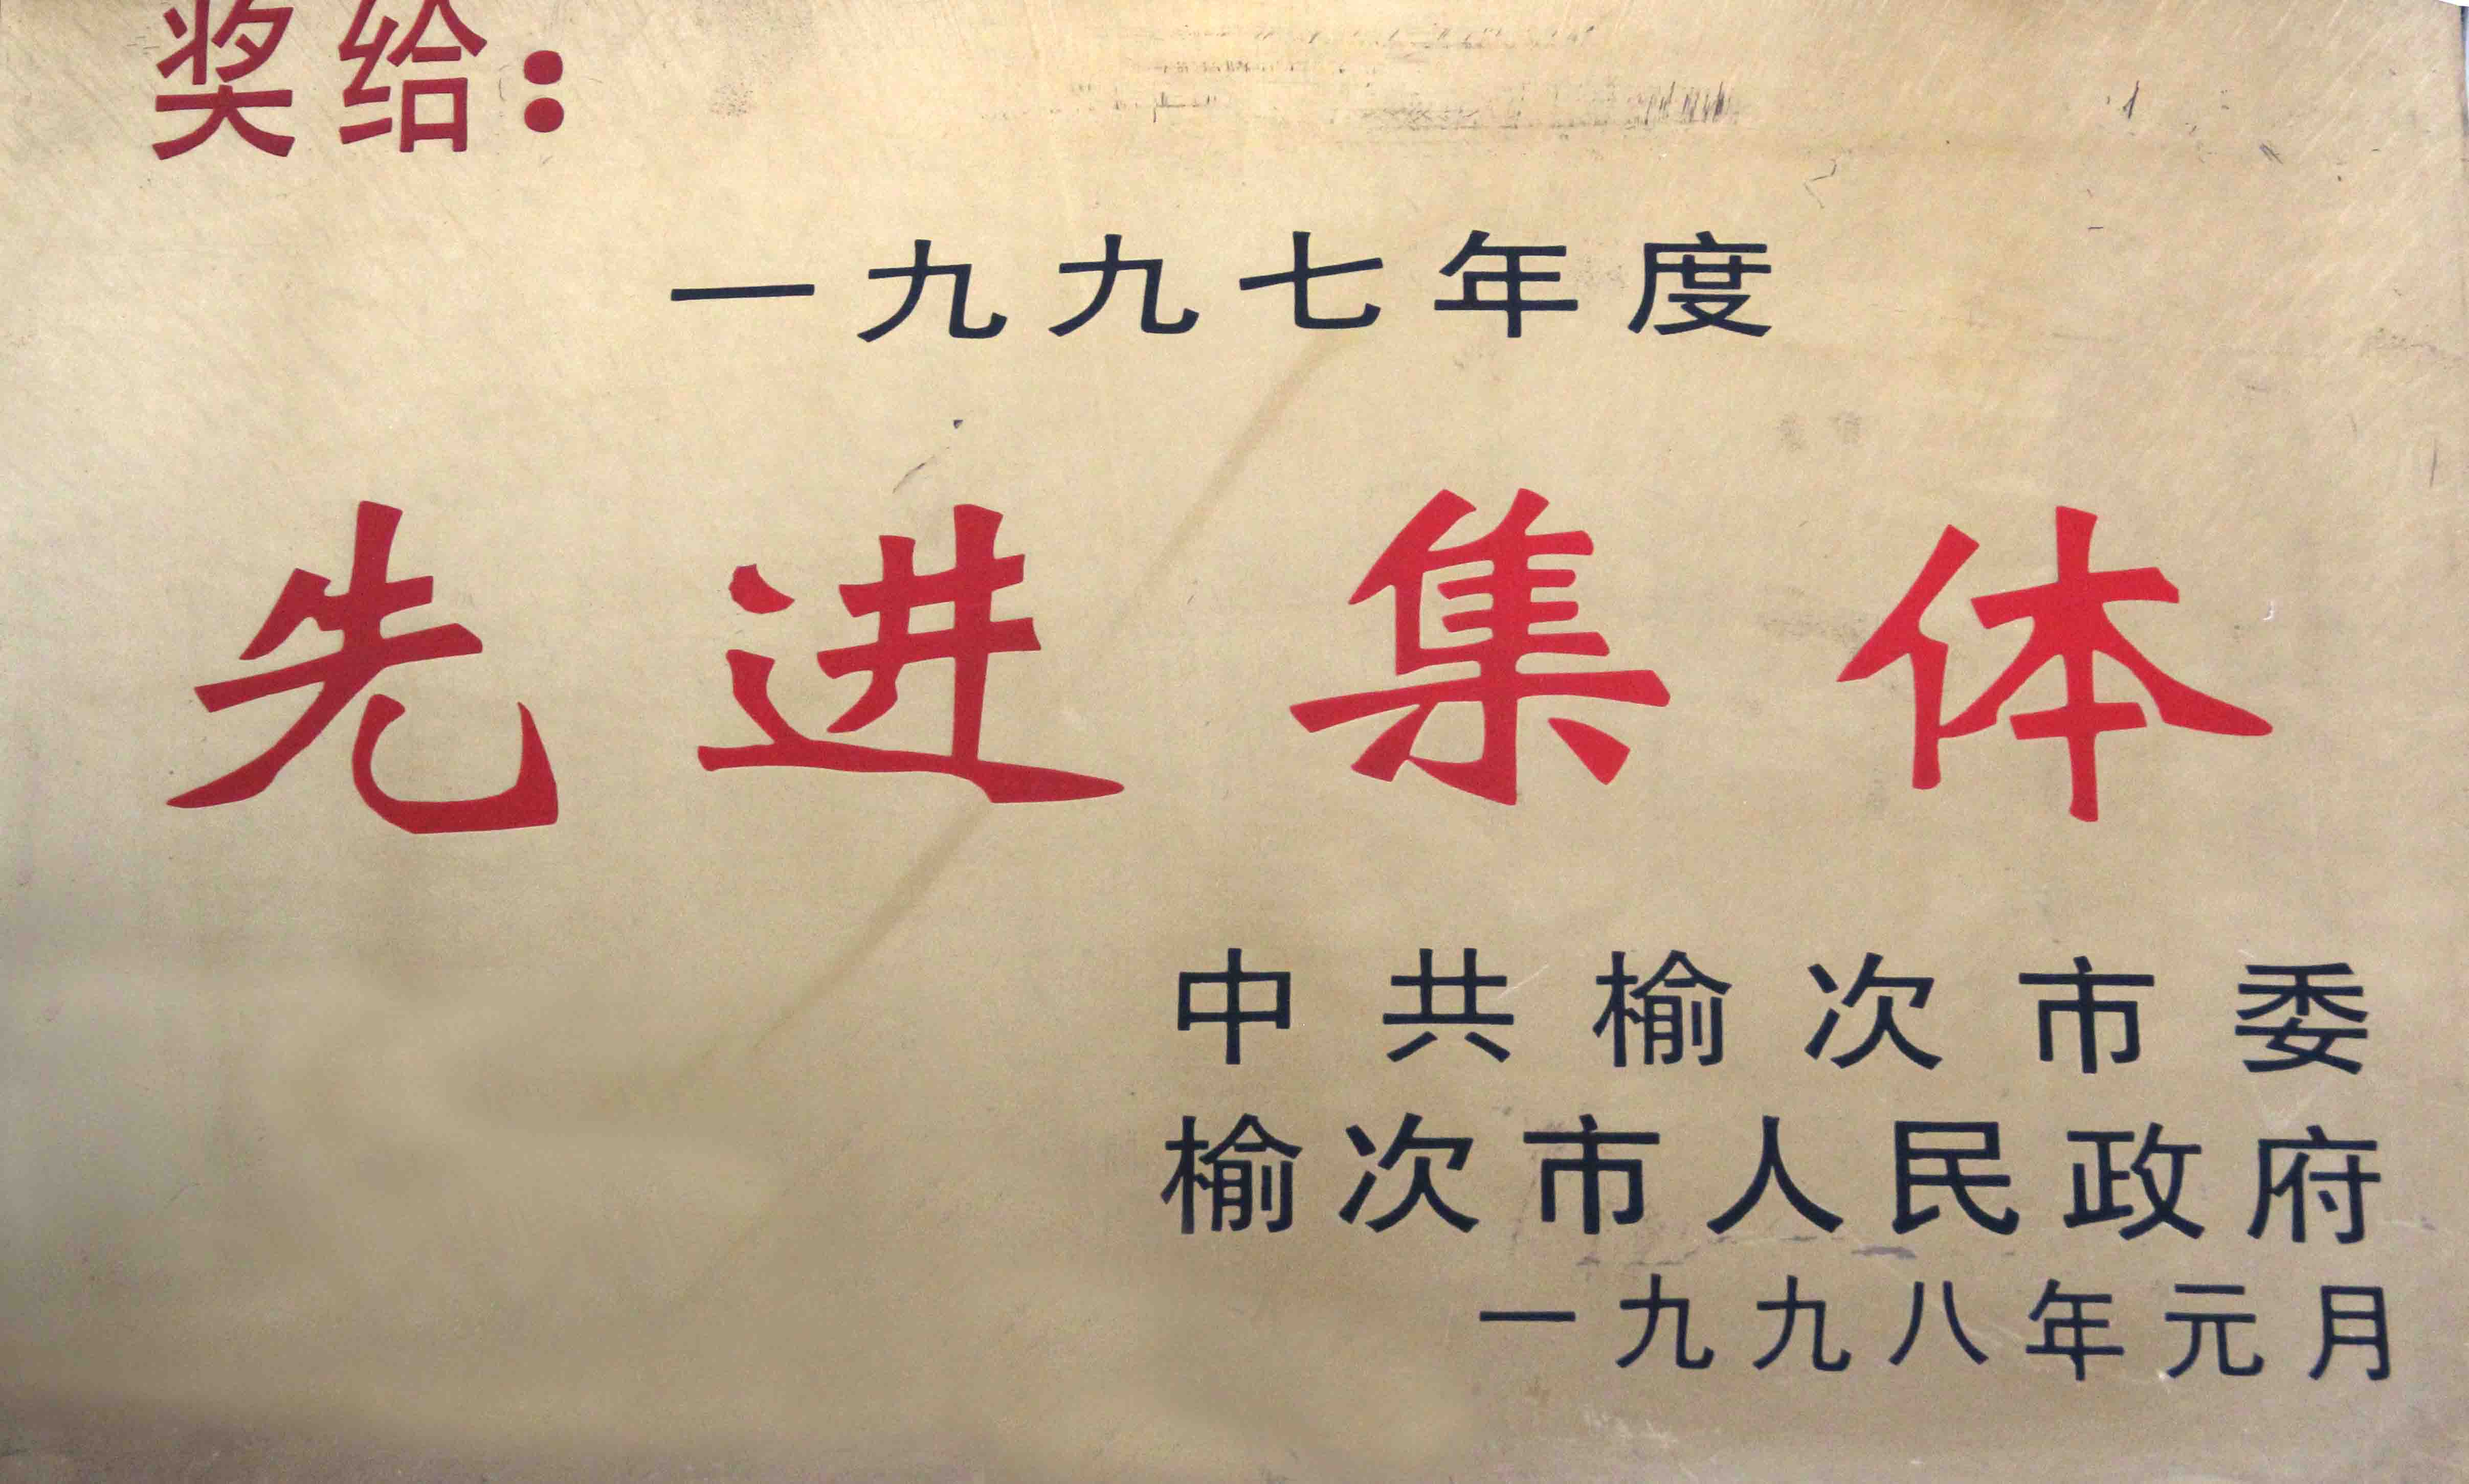 奖给：
一九九七年度
先进集体
中共榆次市委
榆次市人民政府
一九九八年元月